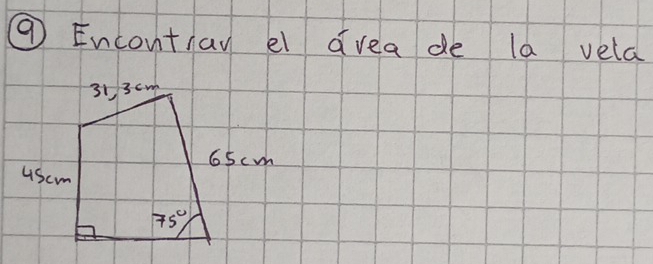 9 Encontrar el área de la vela
31,3cm
65cm
45cm
75°